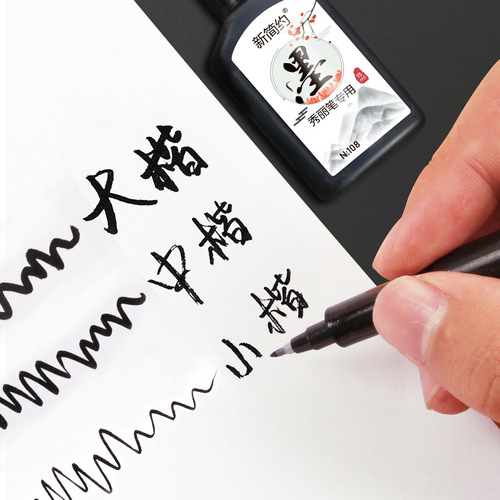 新简约®
墨
秀丽笔专用
N:108
大楷
中楷
小楷